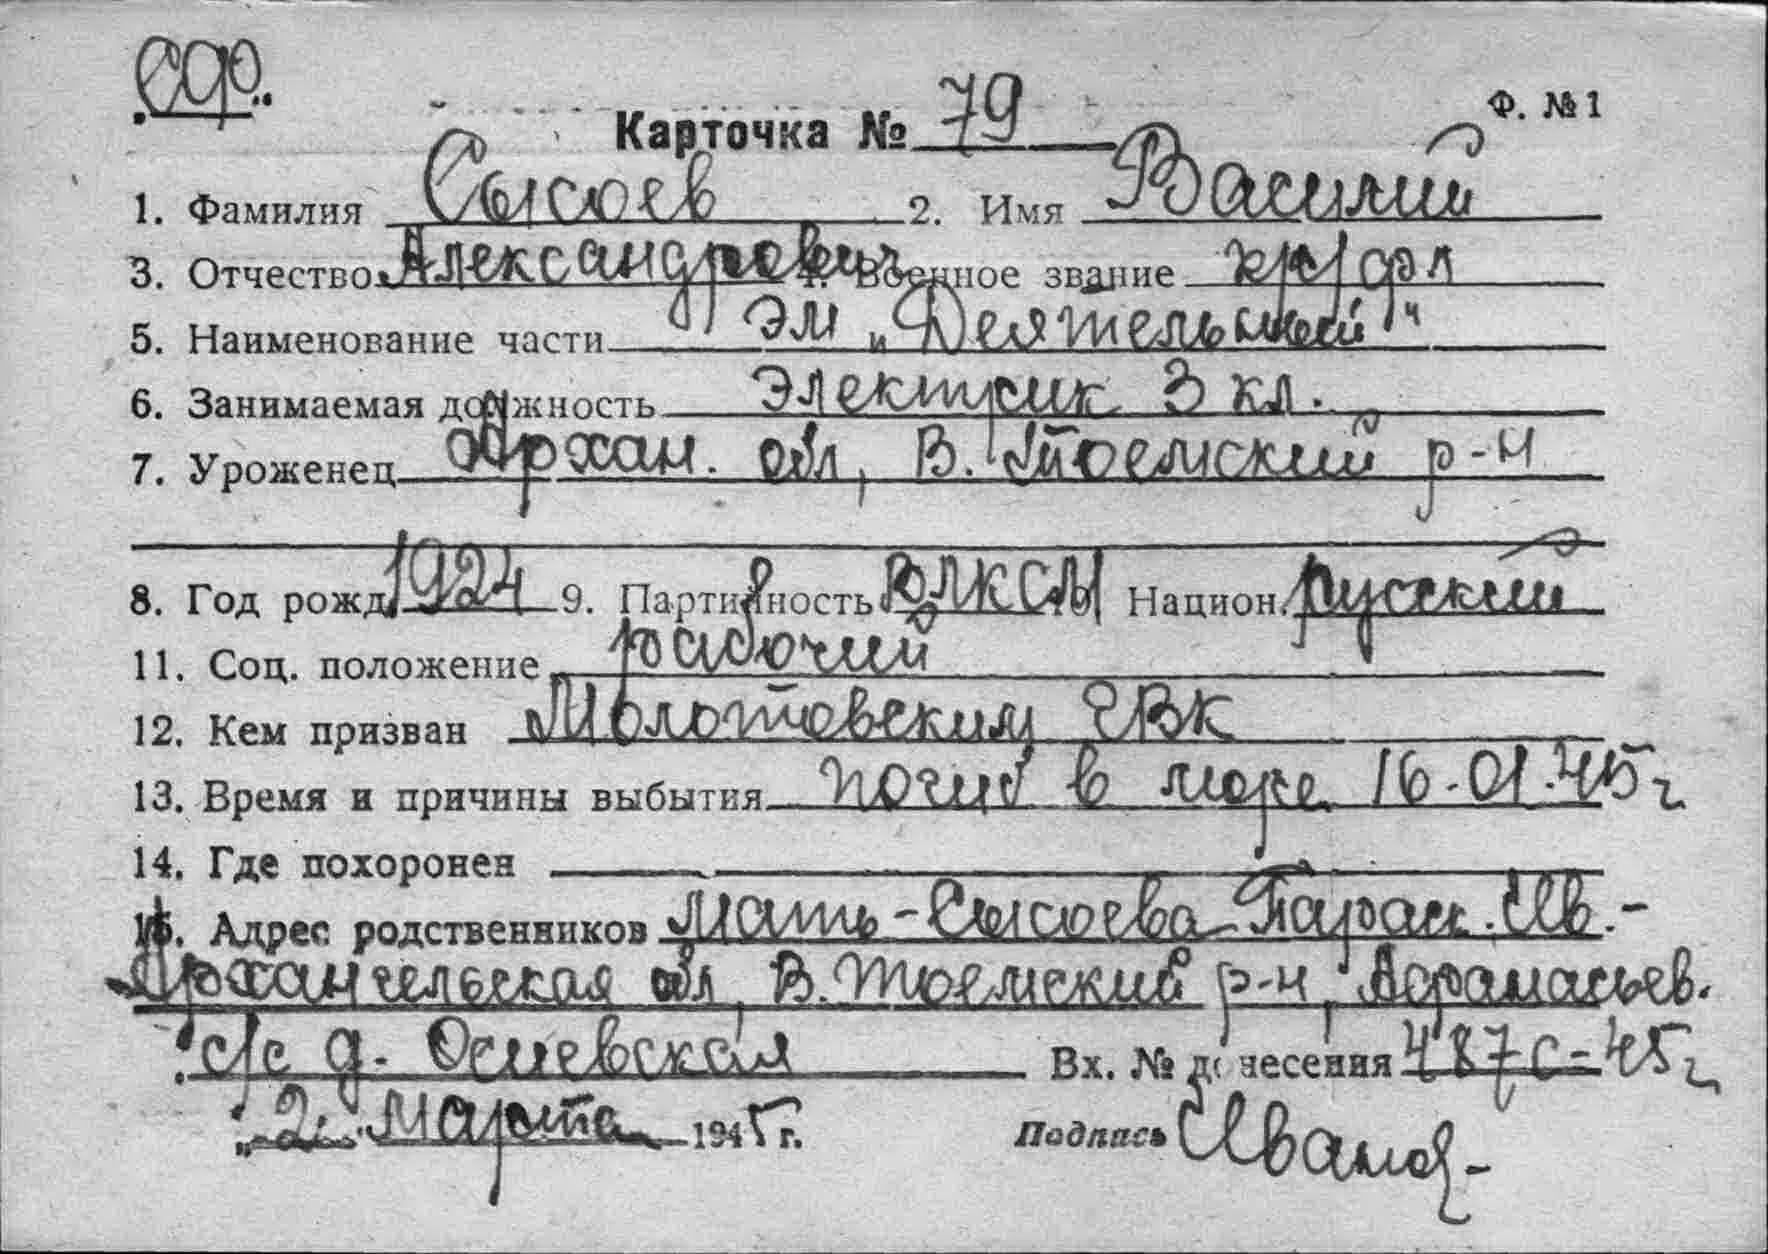 СФ.
Ф. №1
Карточка № 79
1. Фамилия Сысоев 2. Имя Василий
3. Отчество Александрович 4. Военное звание кр/фл
5. Наименование части ЭМ „Деятельный"
6. Занимаемая должность Электрик 3 кл.
7. Уроженец Архан. обл, В. Тоемский р-н
8. Год рожд. 1924 9. Партийность ВЛКСМ Национ. русский
11. Соц. положение рабочий
12. Кем призван Молотовским ГВК
13. Время и причины выбытия погиб в море 16-01-45 г
14. Где похоронен
15. Адрес родственников Мать - Сысоева Параск. Ив. -
Архангельская обл, В. Тоемский р-н,
с/с д. Осиевская Вх. № донесения 487с-45 г.
„2" марта 1945 г. Подпись Иванов